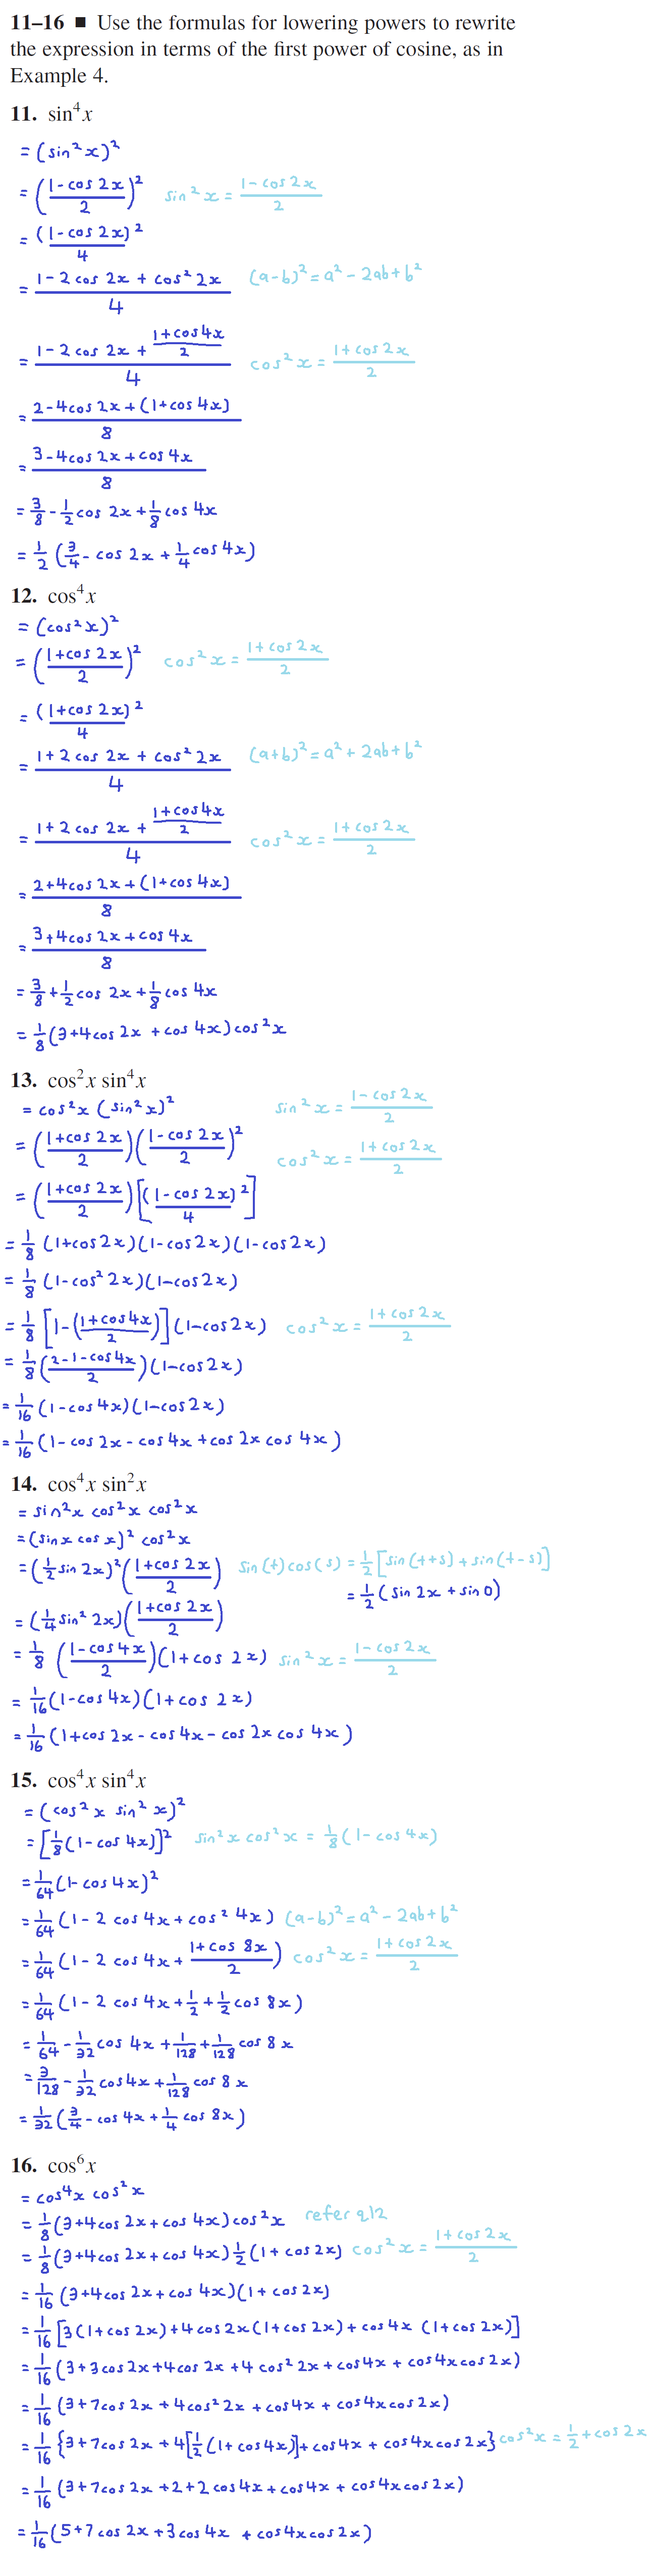 11–16 ■ Use the formulas for lowering powers to rewrite
the expression in terms of the first power of cosine, as in
Example 4.
11. sin⁴x
= (sin²x)²
= ((1-cos 2x)/2)² sin²x = (1-cos 2x)/2
= (1-cos 2x)²/4
= (1-2 cos 2x + cos² 2x)/4 (a-b)² = a² - 2ab + b²
= (1-2 cos 2x + (1+cos4x)/2)/4 cos²x = (1+cos 2x)/2
= (2-4cos 2x+(1+cos 4x))/8
= (3-4cos 2x+cos 4x)/8
= 3/8 - 1/2 cos 2x + 1/8 cos 4x
= 1/2 (3/4 - cos 2x + 1/4 cos 4x)
12. cos⁴x
= (cos²x)²
= ((1+cos 2x)/2)² cos²x = (1+cos 2x)/2
= (1+cos 2x)²/4
= (1+2 cos 2x + cos² 2x)/4 (a+b)² = a² + 2ab + b²
= (1+2 cos 2x + (1+cos4x)/2)/4 cos²x = (1+cos 2x)/2
= (2+4cos 2x+(1+cos 4x))/8
= (3+4cos 2x+cos 4x)/8
= 3/8 + 1/2 cos 2x + 1/8 cos 4x
= 1/8 (3+4cos 2x + cos 4x)cos²x
13. cos²x sin⁴x
= cos²x (sin²x)² sin²x = (1-cos 2x)/2
= ((1+cos 2x)/2)((1-cos 2x)/2)² cos²x = (1+cos 2x)/2
= ((1+cos 2x)/2)[(1-cos 2x)²/4]
= 1/8 (1+cos2x)(1-cos2x)(1-cos2x)
= 1/8 (1-cos² 2x)(1-cos2x)
= 1/8 [1-((1+cos4x)/2)](1-cos2x) cos²x = (1+cos 2x)/2
= 1/8 ((2-1-cos4x)/2)(1-cos2x)
= 1/16 (1-cos4x)(1-cos2x)
= 1/16 (1-cos 2x - cos 4x + cos 2x cos 4x)
14. cos⁴x sin²x
= sin²x cos²x cos²x
= (sin x cos x)² cos²x
= (1/2 sin 2x)²((1+cos 2x)/2) sin(t)cos(s) = 1/2[sin(t+s)+sin(t-s)]
= 1/2 (sin 2x + sin 0)
= (1/4 sin² 2x)((1+cos 2x)/2)
= 1/8 ((1-cos 4x)/2)(1+cos 2x) sin²x = (1-cos 2x)/2
= 1/16 (1-cos 4x)(1+cos 2x)
= 1/16 (1+cos 2x - cos 4x - cos 2x cos 4x)
15. cos⁴x sin⁴x
= (cos²x sin²x)²
= [1/8 (1-cos 4x)]² sin²x cos²x = 1/8 (1-cos 4x)
= 1/64 (1-cos 4x)²
= 1/64 (1-2 cos 4x + cos² 4x) (a-b)² = a² - 2ab + b²
= 1/64 (1-2 cos 4x + (1+cos 8x)/2) cos²x = (1+cos 2x)/2
= 1/64 (1-2 cos 4x + 1/2 + 1/2 cos 8x)
= 1/64 - 1/32 cos 4x + 1/128 + 1/128 cos 8x
= 3/128 - 1/32 cos4x + 1/128 cos 8x
= 1/32 (3/4 - cos 4x + 1/4 cos 8x)
16. cos⁶x
= cos⁴x cos²x
= 1/8 (3+4cos 2x+cos 4x)cos²x refer q12
= 1/8 (3+4cos 2x+cos 4x) 1/2 (1+cos 2x) cos²x = (1+cos 2x)/2
= 1/16 (3+4cos 2x+cos 4x)(1+cos 2x)
= 1/16 [3(1+cos 2x)+4cos 2x(1+cos 2x)+cos 4x (1+cos 2x)]
= 1/16 (3+3cos 2x+4cos 2x+4 cos² 2x+cos4x + cos4xcos2x)
= 1/16 (3+7cos 2x +4cos² 2x +cos4x + cos4xcos2x)
= 1/16 {3+7cos 2x +4[1/2 (1+cos4x)]+cos4x + cos4xcos2x} cos²x = 1/2 + cos 2x
= 1/16 (3+7cos 2x +2+2 cos4x +cos4x + cos4xcos2x)
= 1/16 (5+7cos 2x +3cos 4x + cos4xcos2x)